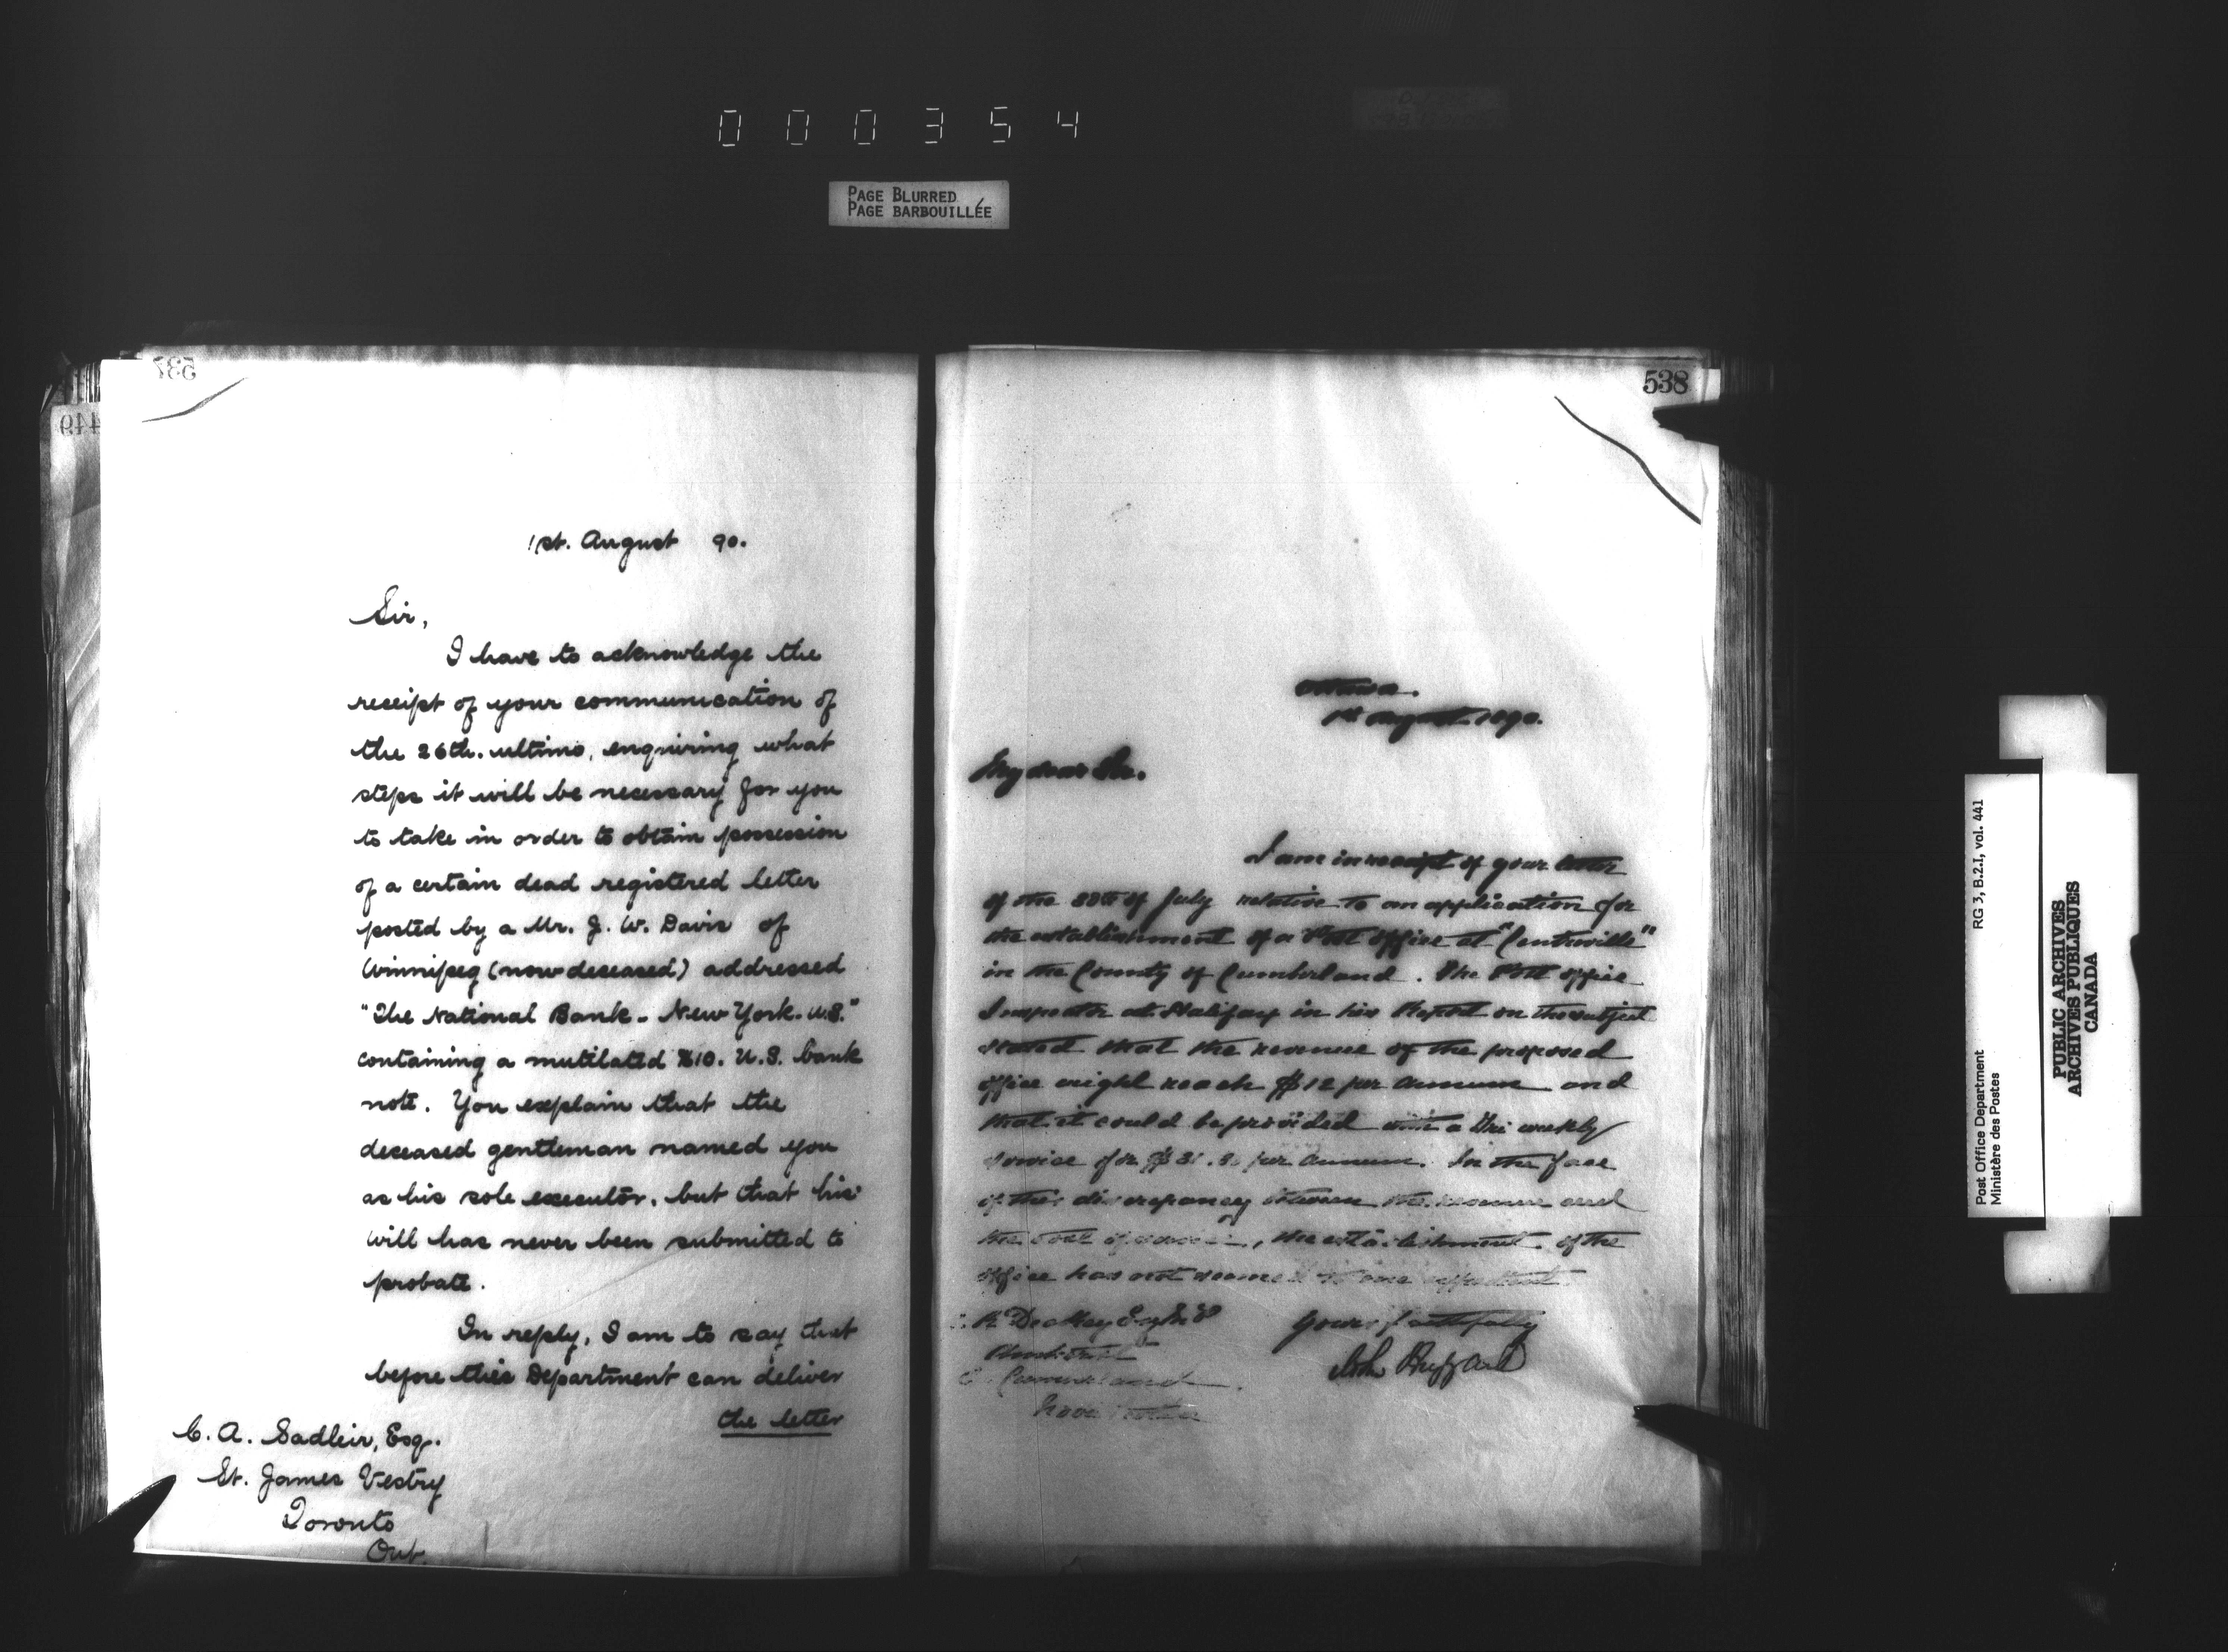 000354
PAGE BLURRED
PAGE BARBOUILLÉE
537
449
1st. August 90.
Sir,
I have to acknowledge the
receipt of your communication of
the 26th. ultimo, enquiring what
steps it will be necessary for you
to take in order to obtain possession
of a certain dead registered letter
posted by a Mr. J. W. Davis of
Winnipeg (now deceased) addressed
"The National Bank. New York. U.S."
containing a mutilated $10. U.S. bank
note. You explain that the
deceased gentleman named you
as his sole executor, but that his
will has never been submitted to
probate.
In reply, I am to say that
before this Department can deliver
the letter
C. A. Sadleir, Esq.
St. James Vestry
Toronto
Ont.
538
Ottawa.
1st August 1890.
My dear Sir.
I am in receipt of your letter
of the of July relative to an application for
the establishment of a Post office at "Centreville"
in the County of Cumberland. The Post office
Inspector at Halifax in his Report on the subject
stated that the revenue of the proposed
office might reach $12 per annum and
that it could be provided with a tri weekly
service for per annum. In the face
of this discrepancy between the revenue and
the cost of service, the establishment of the
office has not seemed to me expedient
R. Dickey Esq M P
Yours faithfully
Amherst
John Haggart
Cumberland.
Nova Scotia
Post Office Department RG 3, B.2.I, vol. 441
Ministère des Postes
PUBLIC ARCHIVES
ARCHIVES PUBLIQUES
CANADA